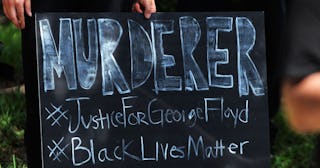 MURDERER
#JusticeForGeorgeFloyd
#BlackLivesMatter